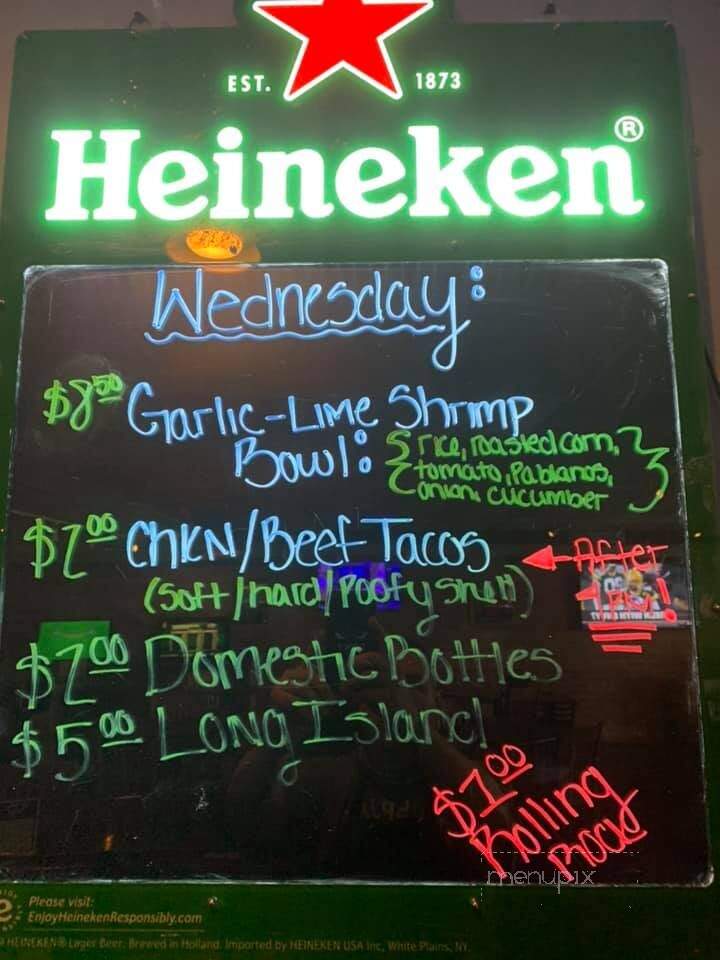 EST. 1873
Heineken®
Wednesday:
$8.50 Garlic-Lime Shrimp
Bowl: {rice, roasted corn,
tomato, Pablanos,
onion, cucumber}
$2.00 CHKN/Beef Tacos ← After
(Soft/hard/Poofy Shell)
$2.00 Domestic Bottles
$5.00 Long Island
$1.00
Rolling
Rock
menupix
Please visit:
EnjoyHeinekenResponsibly.com
HEINEKEN® Lager Beer. Brewed in Holland. Imported by HEINEKEN USA Inc, White Plains, NY.